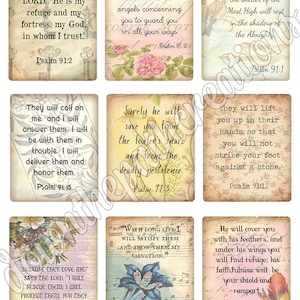 LORD, He is my
refuge and my
fortress, my God,
in whom I trust.
Psalm 91:2
angels concerning
you to guard you
in all your ways
Psalm 91:11
Most High will rest
in the shadow of
the Almighty.
Psalm 91:1
They will call on
me, and I will
answer them; I will
be with them in
trouble, I will
deliver them and
honor them.
Psalm 91:15
Surely he will
save you from
the fowler's snare
and from the
deadly pestilence
Psalm 91:3
They will lift
you up in
their hands, so
that you will
not strike
your foot
against a stone.
Psalm 91:12
"Because they love me,"
says the LORD, "I will
rescue them; I will
protect them, for they
"With long life I
will satisfy them
and show them my
salvation."
He will cover you
with his feathers, and
under his wings you
will find refuge; his
faithfulness will be
your shield and
rampart.